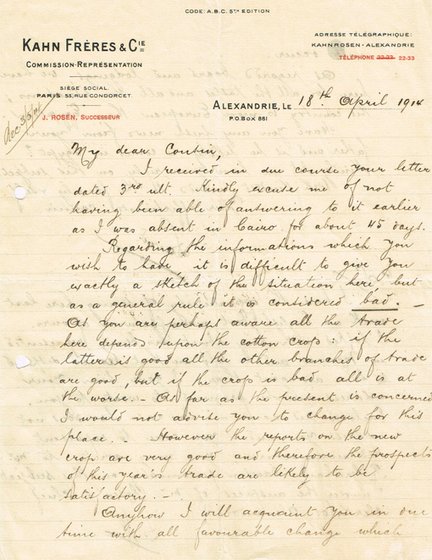 CODE: A.B.C. 5TH EDITION
KAHN FRÈRES & CIE
COMMISSION-REPRESENTATION
ADRESSE TÉLÉGRAPHIQUE:
KAHNROSEN-ALEXANDRIE
TÉLÉPHONE 22-33 22-33
SIÈGE SOCIAL
PARIS. 53, RUE CONDORCET.
J. ROSEN, SUCCESSEUR
ALEXANDRIE, LE 18th April 1914
P.O. BOX 881
My dear Cousin,
I received in due course your letter
dated 3rd ult. Kindly excuse me of not
having been able of answering to it earlier
as I was absent in Cairo for about 45 days.
Regarding the informations which you
wish to have, it is difficult to give you
exactly a sketch of the situation here, but
as a general rule it is considered bad. -
As you are perhaps aware all the trade
here depends upon the cotton crop: if the
latter is good all the other branches of trade
are good, but if the crop is bad all is at
the worse. - As far as the present is concerned
I would not advise you to change for this
place. - However the reports on the new
crop are very good and therefore the prospects
of this year's trade are likely to be
satisfactory. -
Anyhow I will acquaint you in due
time with all favourable change which